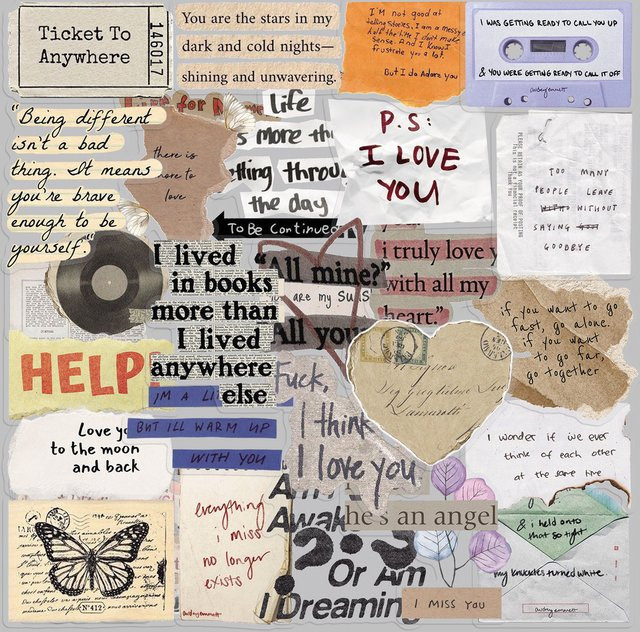 Ticket To
Anywhere
146017
You are the stars in my
dark and cold nights—
shining and unwavering.
I'm not good at
telling stories, I am a messy
sense. And I know I
frustrate you a lot.
But I do Adore you
I WAS GETTING READY TO CALL YOU UP
& YOU WERE GETTING READY TO CALL IT OFF
audreyemmett
"Being different
isn't a bad
thing. It means
you're brave
enough to be
yourself."
there is
more to
love
life
is more
thing
the day
To Be Continued
P.S:
I LOVE
YOU
PLEASE RETAIN AS YOUR PROOF OF POSTING
TOO MANY
PEOPLE LEAVE
WITHOUT
SAYING
GOODBYE
I lived
in books
more than
I lived
anywhere
else
"All mine?"
You are my
All you
i truly love y
with all my
heart."
if you want to go
fast, go alone.
if you want
to go far,
go together
HELP
I'M A
BUT ILL WARM UP
WITH YOU
Love yo
to the moon
and back
Fuck,
I think
I love you
i wonder if we ever
think of each other
at the same time
& i held onto
that so tight
my knuckles turned white
audreyemmett
everything
i miss
no longer
exists
audreyemmett
Am I
Awak
Or Am
I Dreaming
he's an angel
I MISS YOU
Nº412